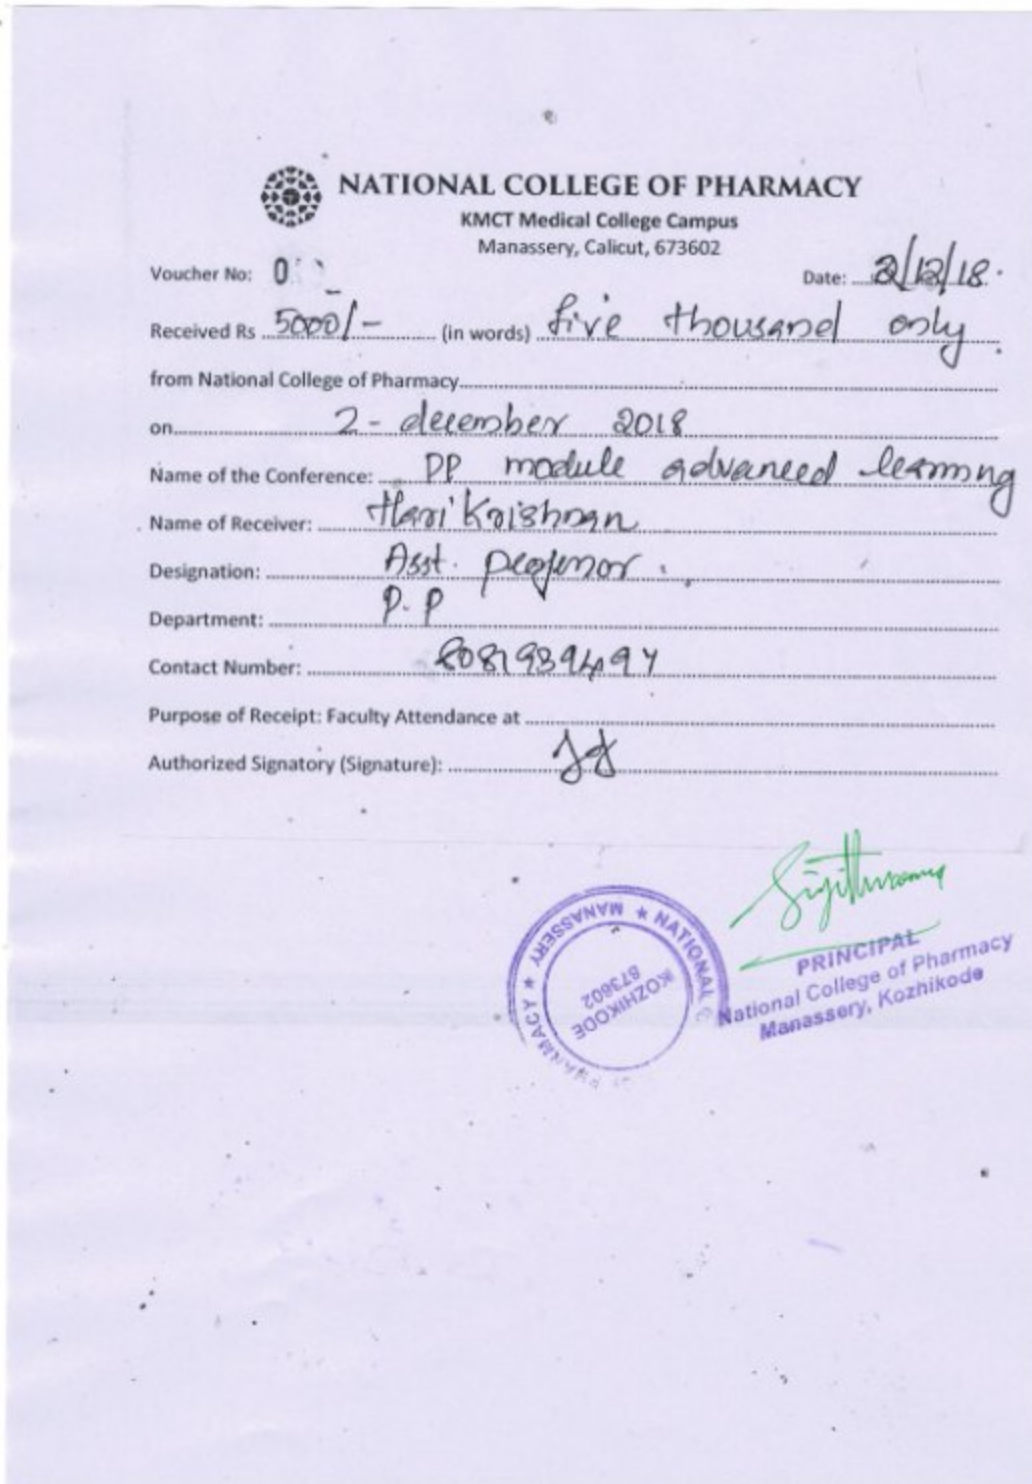 NATIONAL COLLEGE OF PHARMACY
KMCT Medical College Campus
Manassery, Calicut, 673602
Voucher No: 0
Date: 2/12/18.
Received Rs 5000/- (in words) five thousand only.
from National College of Pharmacy
on 2 - december 2018
Name of the Conference: PP module advanced learning
Name of Receiver: Hari Krishnan
Designation: Asst. professor.
Department: P.P
Contact Number:
Purpose of Receipt: Faculty Attendance at
Authorized Signatory (Signature):
PRINCIPAL
National College of Pharmacy
Manassery, Kozhikode
MANASSERY ★ NATIONAL C
PHARMACY ★
KOZHIKODE
673602